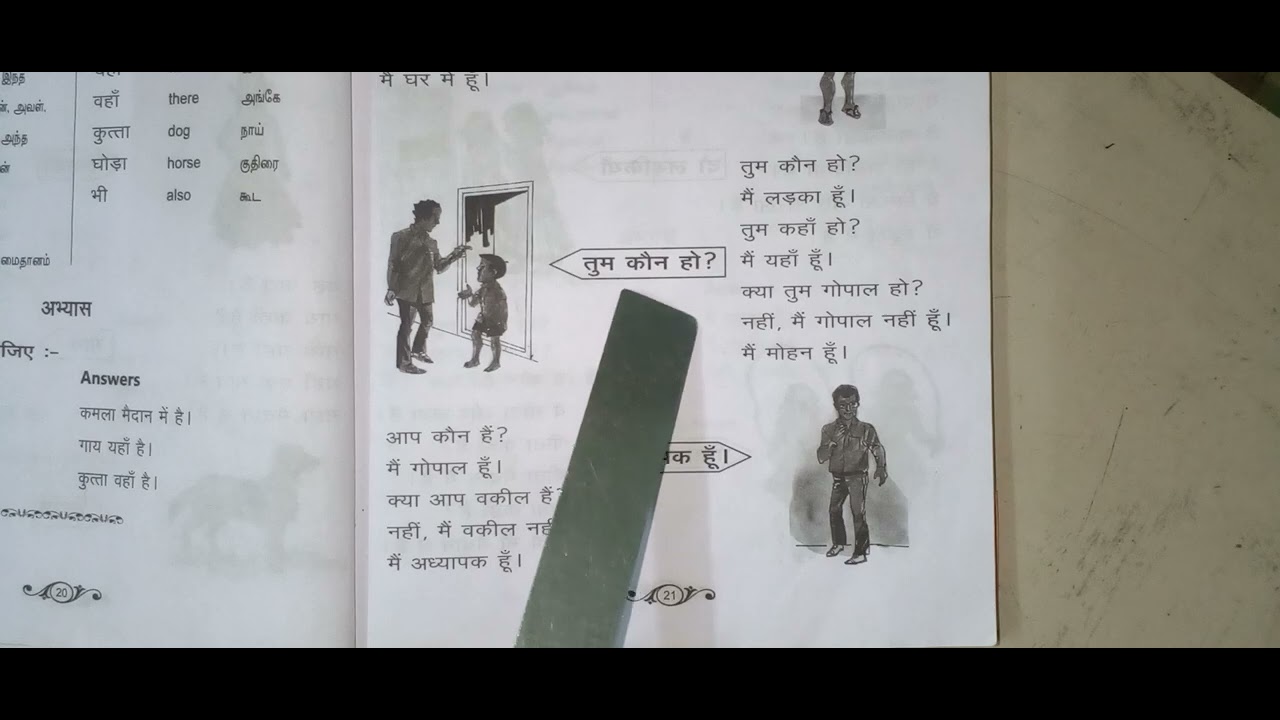 இந்த
வहाँ there அங்கே
कुत्ता dog நாய்
घोड़ा horse குதிரை
भी also கூட
அவள்.
அந்த
மைதானம்
अभ्यास
जिए :–
Answers
कमला मैदान में है।
गाय यहाँ है।
कुत्ता वहाँ है।
20
मैं घर में हूँ।
तुम कौन हो?
तुम कौन हो?
मैं लड़का हूँ।
तुम कहाँ हो?
मैं यहाँ हूँ।
क्या तुम गोपाल हो?
नहीं, मैं गोपाल नहीं हूँ।
मैं मोहन हूँ।
आप कौन हैं?
मैं गोपाल हूँ।
क्या आप वकील हैं?
नहीं, मैं वकील
मैं अध्यापक हूँ।
हूँ।
21